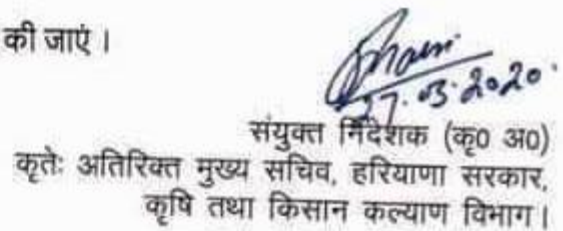 की जाएं।
27.03.2020.
संयुक्त निदेशक (कृ0 अ0)
कृतेः अतिरिक्त मुख्य सचिव, हरियाणा सरकार,
कृषि तथा किसान कल्याण विभाग।